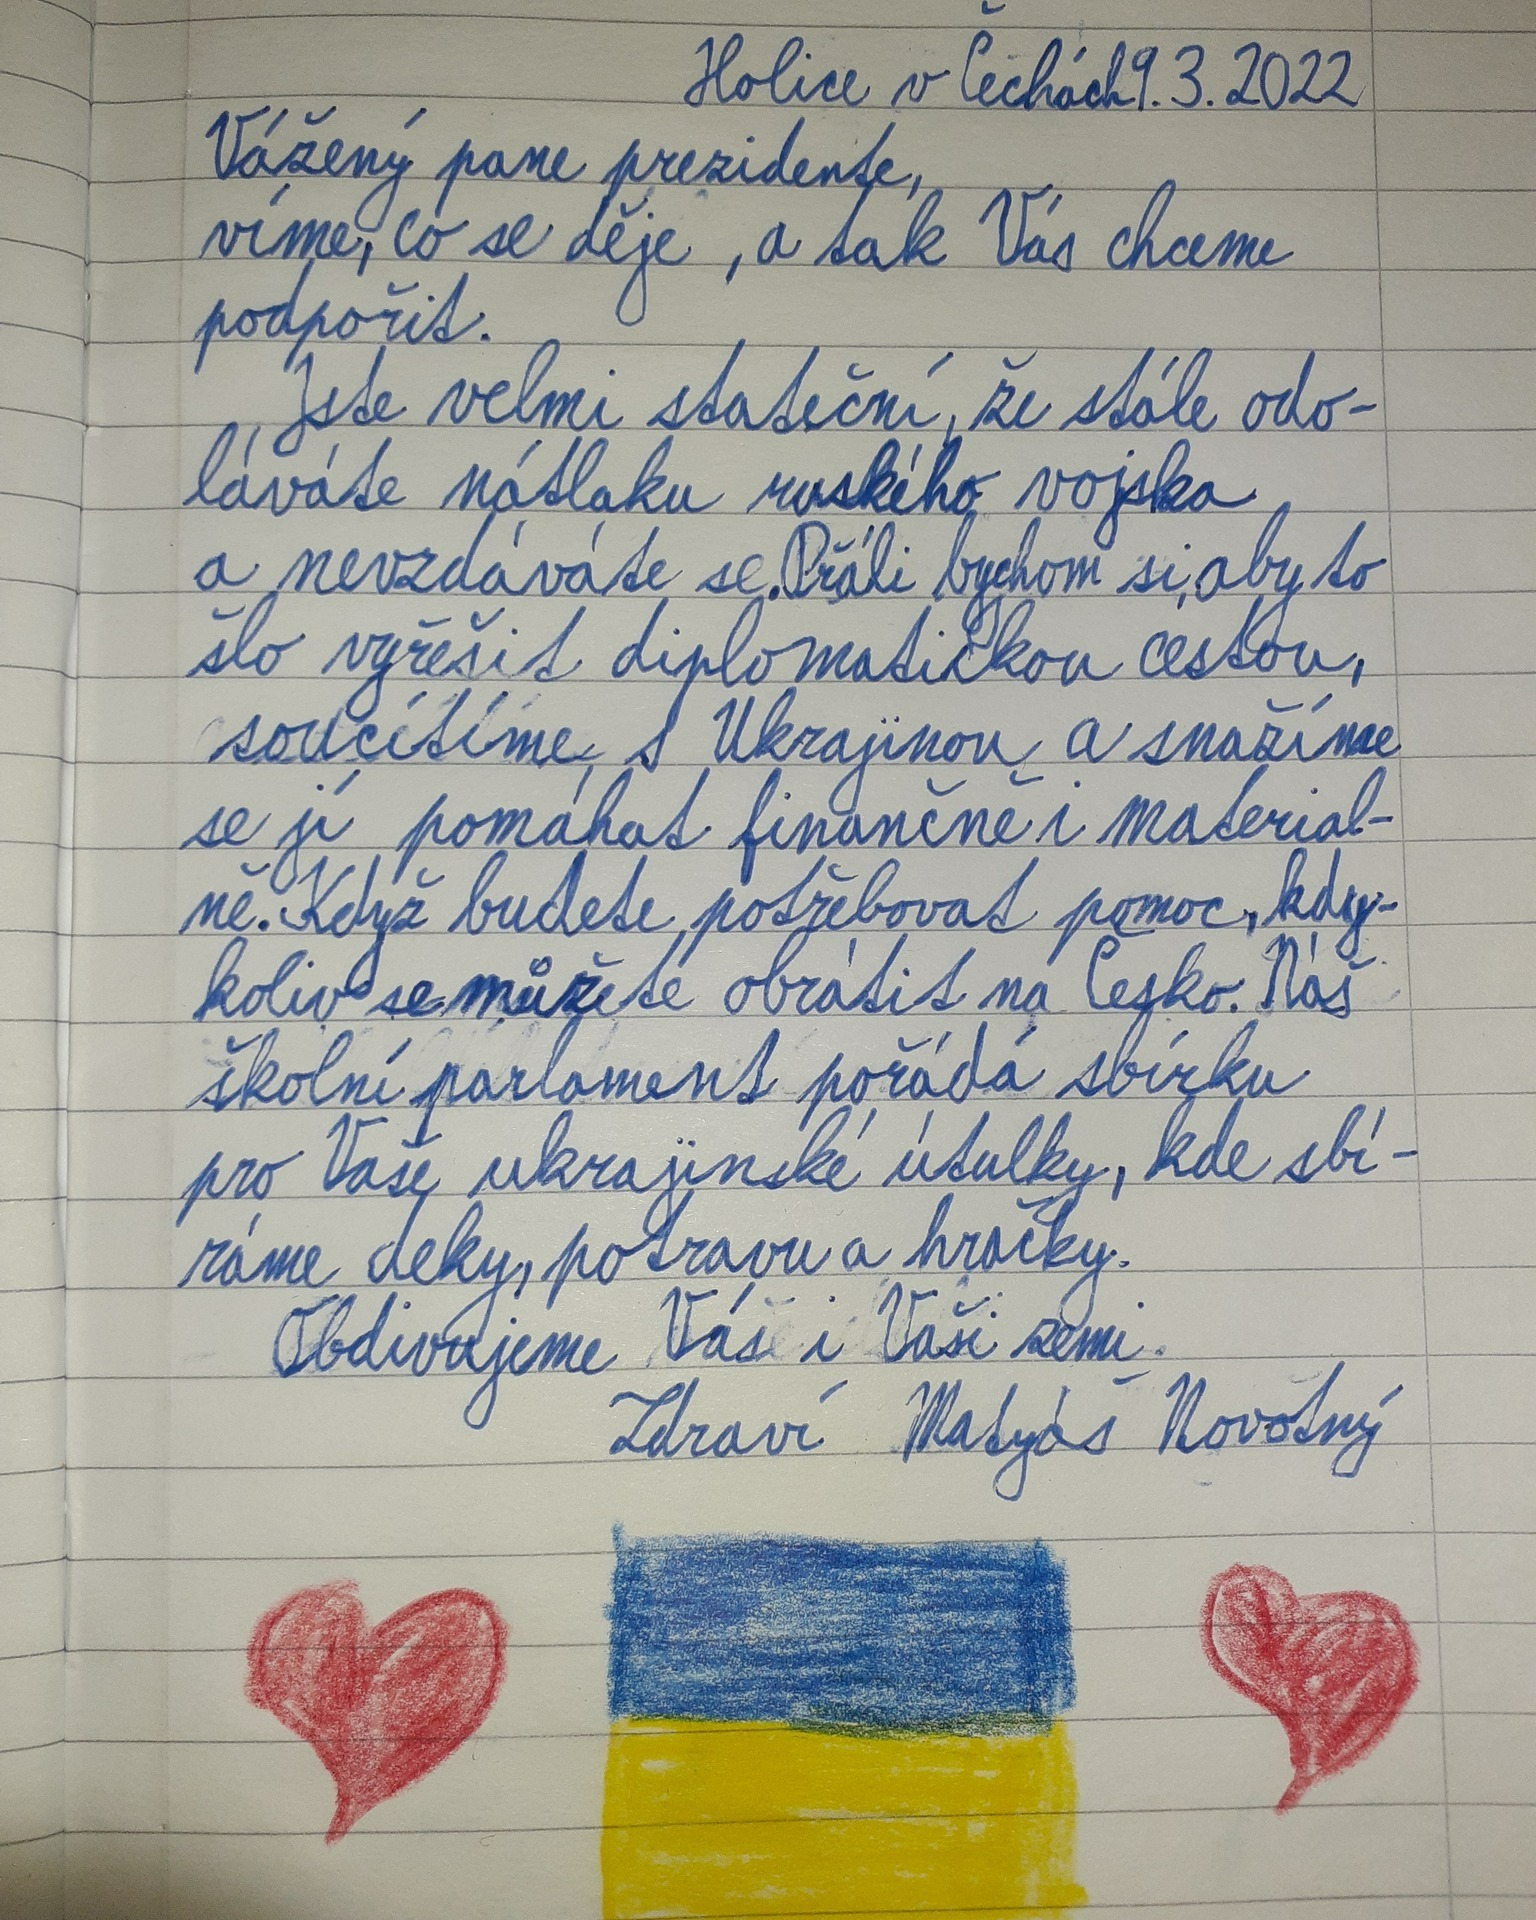 Holice v Čechách 9.3.2022
Vážený pane prezidente,
víme, co se děje, a tak Vás chceme
podpořit.
Jste velmi stateční, že stále odo-
láváte nátlaku ruského vojska
a nevzdáváte se. Přáli bychom si, aby to
šlo vyřešit diplomatickou cestou,
soucítíme s Ukrajinou a snažíme
se jí pomáhat finančně i material-
ně. Když budete potřebovat pomoc, kdy-
koliv se můžete obrátit na Česko. Náš
školní parlament pořádá sbírku
pro Vaše ukrajinské útulky, kde sbí-
ráme deky, potravu a hračky.
Obdivujeme Vás i Vaši zemi.
Zdraví Matyáš Novotný